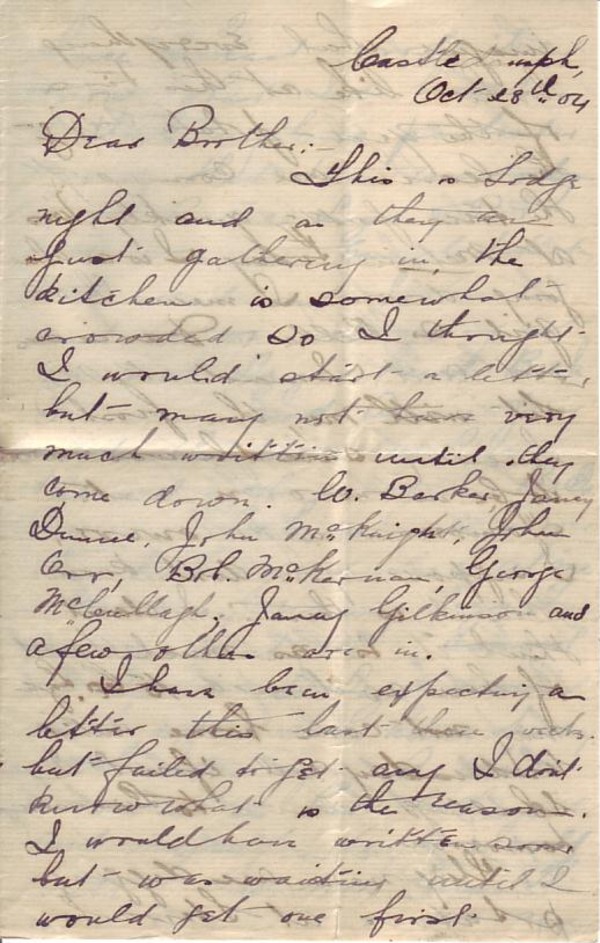 Castle
Oct 28th 04
Dear Brother:-
This is Lodge
night and as they are
just gathering in, the
kitchen is somewhat
crowded so I thought
I would start a letter,
but may not have very
much written until they
come down. W. Barker, Jamey
Dunne, John McKnight, John
Orr, Bob. McKernan, George
McCullagh, Jamey Gilkinson and
a few others are in.
I have been expecting a
letter this last three weeks.
but failed to get any I don't
know what is the reason.
I would have written some
but was waiting until I
would get one first.